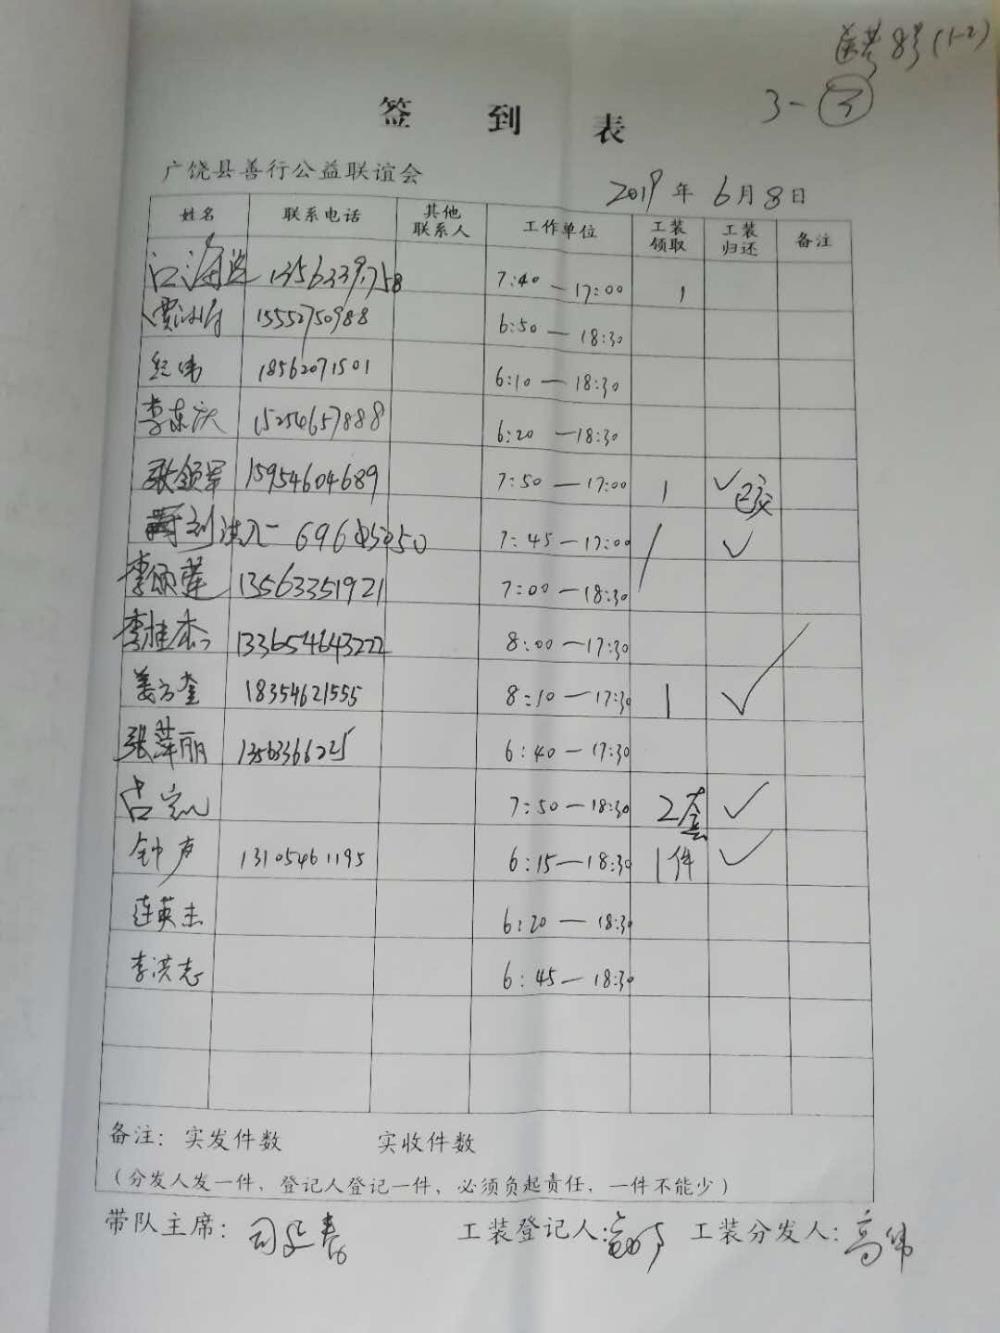 高考8号(1-2)
3-③
签 到 表
广饶县善行公益联谊会
2019年6月8日
姓名 联系电话 其他联系人 工作单位 工装领取 工装归还 备注
7:40—17:00 1
15552750988 6:50—18:30
纪伟 18562071501 6:10—18:30
李东庆 15254657888 6:20—18:30
张领军 15954604689 7:50—17:00 1 ✓已交
7:45—17:00 / ✓
李颂莲 13563351921 7:00—18:30
李桂杰 8:00—17:30
姜方奎 18354621555 8:10—17:30 1 ✓
张萍丽 6:40—17:30
7:50—18:30 2套 ✓
钟声 13105461195 6:15—18:30 1件 ✓
连英杰 6:20—18:30
李洪志 6:45—18:30
备注：实发件数 实收件数
（分发人发一件、登记人登记一件，必须负起责任，一件不能少）
带队主席：司延春 工装登记人： 工装分发人：高伟